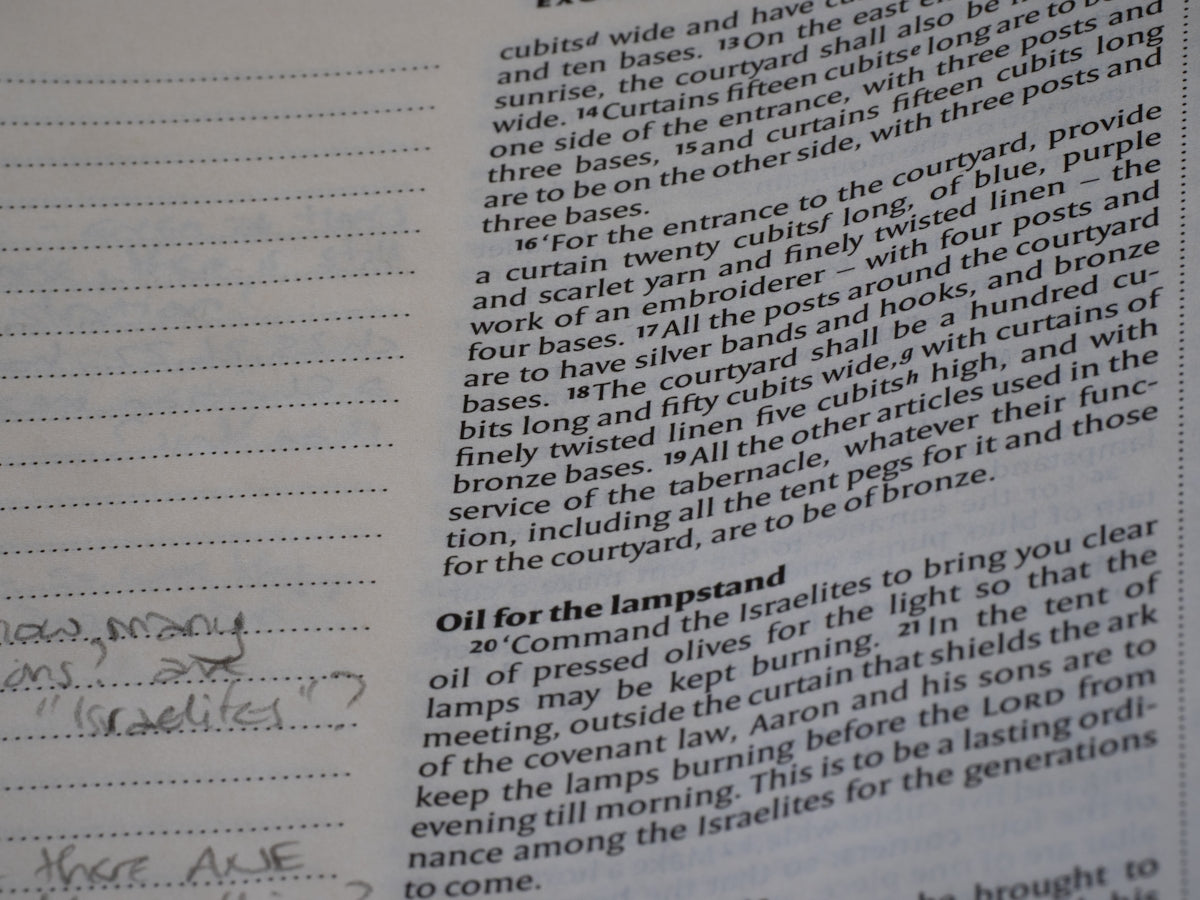 cubitsᵈ wide and have
and ten bases. ¹³On the east
sunrise, the courtyard shall also be
wide. ¹⁴Curtains fifteen cubitsᵉ long are to
one side of the entrance, with three posts and
three bases, ¹⁵and curtains fifteen cubits long
are to be on the other side, with three posts and
three bases.
¹⁶‘For the entrance to the courtyard, provide
a curtain twenty cubitsᶠ long, of blue, purple
and scarlet yarn and finely twisted linen – the
work of an embroiderer – with four posts and
four bases. ¹⁷All the posts around the courtyard
are to have silver bands and hooks, and bronze
bases. ¹⁸The courtyard shall be a hundred cu-
bits long and fifty cubits wide,ᵍ with curtains of
finely twisted linen five cubitsʰ high, and with
bronze bases. ¹⁹All the other articles used in the
service of the tabernacle, whatever their func-
tion, including all the tent pegs for it and those
for the courtyard, are to be of bronze.
Oil for the lampstand
²⁰‘Command the Israelites to bring you clear
oil of pressed olives for the light so that the
lamps may be kept burning. ²¹In the tent of
meeting, outside the curtain that shields the ark
of the covenant law, Aaron and his sons are to
keep the lamps burning before the LORD from
evening till morning. This is to be a lasting ordi-
nance among the Israelites for the generations
to come.
brought to
how many
are
"Israelites"?
there ANE